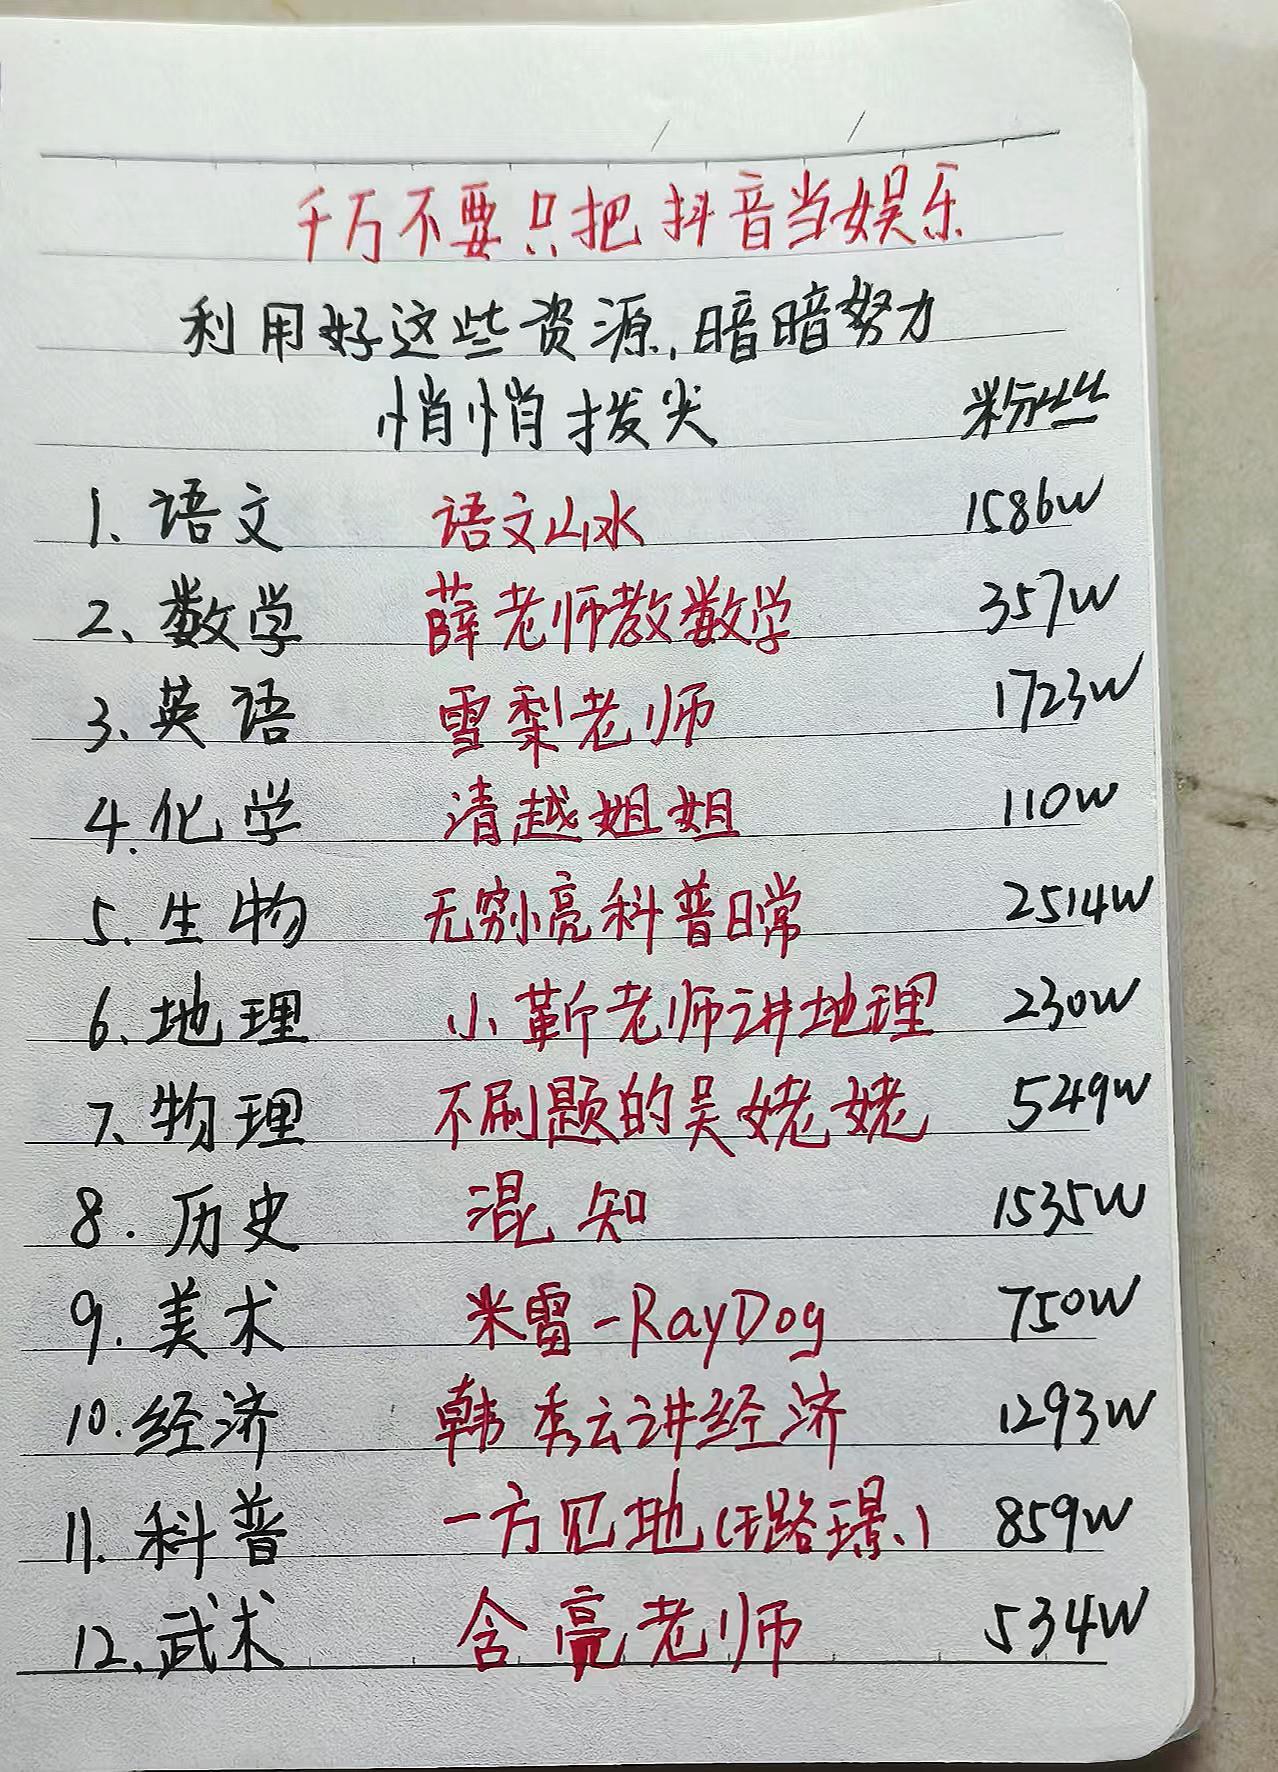 千万不要只把抖音当娱乐
利用好这些资源,暗暗努力
悄悄拔尖 粉丝
1、语文 语文山水 1586W
2、数学 薛老师教数学 357W
3、英语 雪梨老师 1723W
4、化学 清越姐姐 110W
5、生物 无穷小亮科普日常 2514W
6、地理 小靳老师讲地理 230W
7、物理 不刷题的吴姥姥 549W
8、历史 混知 1535W
9、美术 米雷-RayDog 750W
10、经济 韩秀云讲经济 1293W
11、科普 一方见地(王路璟) 859W
12、武术 含亮老师 534W